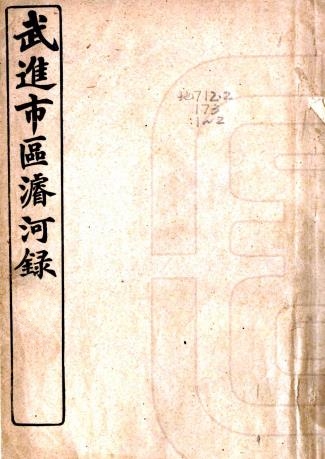 武進市區濬河録
地712.2
173
1~2